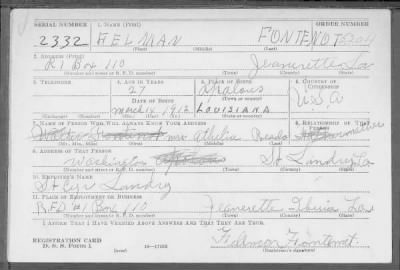 SERIAL NUMBER 1. NAME (Print) ORDER NUMBER
2332 HELMAN FONTENOT
(First) (Middle) (Last)
2. ADDRESS (Print)
R1 Box 110 Jeanerette La
(Number and street or R. F. D. number) (Town) (County) (State)
3. TELEPHONE 4. AGE IN YEARS 5. PLACE OF BIRTH 6. COUNTRY OF CITIZENSHIP
27 Opalous
DATE OF BIRTH U.S.A
March 14 1913 LOUISIANA
(Exchange) (Number) (Mo.) (Day) (Yr.) (State or country)
7. NAME OF PERSON WHO WILL ALWAYS KNOW YOUR ADDRESS 8. RELATIONSHIP OF THAT PERSON
mrs Athelia
(Mr., Mrs., Miss) (First) (Middle) (Last)
9. ADDRESS OF THAT PERSON
Washington St Landry La
(Number and street or R. F. D. number) (Town) (County) (State)
10. EMPLOYER'S NAME
St Cyr Landry
11. PLACE OF EMPLOYMENT OR BUSINESS
R.F.D #1 Box 110 Jeanerette Iberia Law
(Number and street or R. F. D. number) (Town) (County) (State)
I AFFIRM THAT I HAVE VERIFIED ABOVE ANSWERS AND THAT THEY ARE TRUE.
REGISTRATION CARD
D. S. S. Form 1 16—17105
(Registrant's signature)